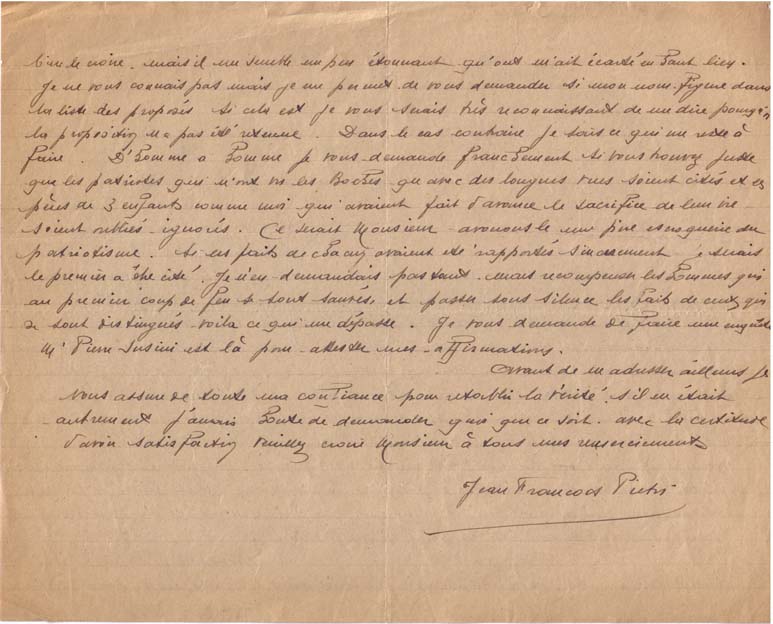 croire. mais il me semble un peu étonnant qu'ont m'ait écarté en haut lieu.
Je ne vous connais pas mais je me permet de vous demander si mon nom figure dans
la liste des proposés si cela est je vous serais très reconnaissant de me dire pourquoi
la proposition n'a pas été retenue. Dans le cas contraire je sais ce qui me reste à
faire. D'homme a homme je vous demande franchement si vous trouvez juste
que les patriotes qui n'ont vu les Boches qu'avec des longues vues soient cités et
pères de 3 enfants comme moi qui avaient fait d'avance le sacrifice de leur vie
soient oubliés ignorés. Ce serait Monsieur avouons le une pire escroquerie au
patriotisme. Si les faits de chacun avaient été rapportés sincèrement je serais
le premier a être cité. Je n'en demandais pas tant. mais recompenser les hommes qui
au premier coup de feu se sont sauvés et passer sous silence les faits de ceux qui
se sont distingués voila ce qui me dépasse. Je vous demande de faire une enquête
Mr Pierre Susini est là pour attester mes affirmations.
Avant de m'adresser ailleurs je
vous assure de toute ma confiance pour retablir la vérité. s'il en était
autrement j'aurais honte de demander quoi que ce soit. avec la certitude
d'avoir satisfaction veuillez croire Monsieur à tous mes remerciements
Jean François Pietri